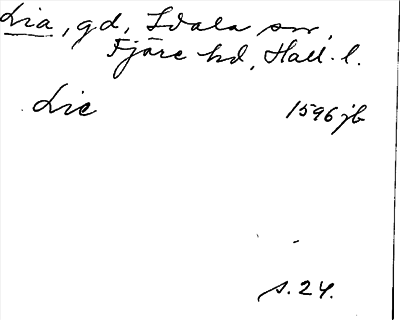 Lia, gd, Idala sn,
Fjäre hd, Hall. l.
Lie 1596 jb
s. 24.